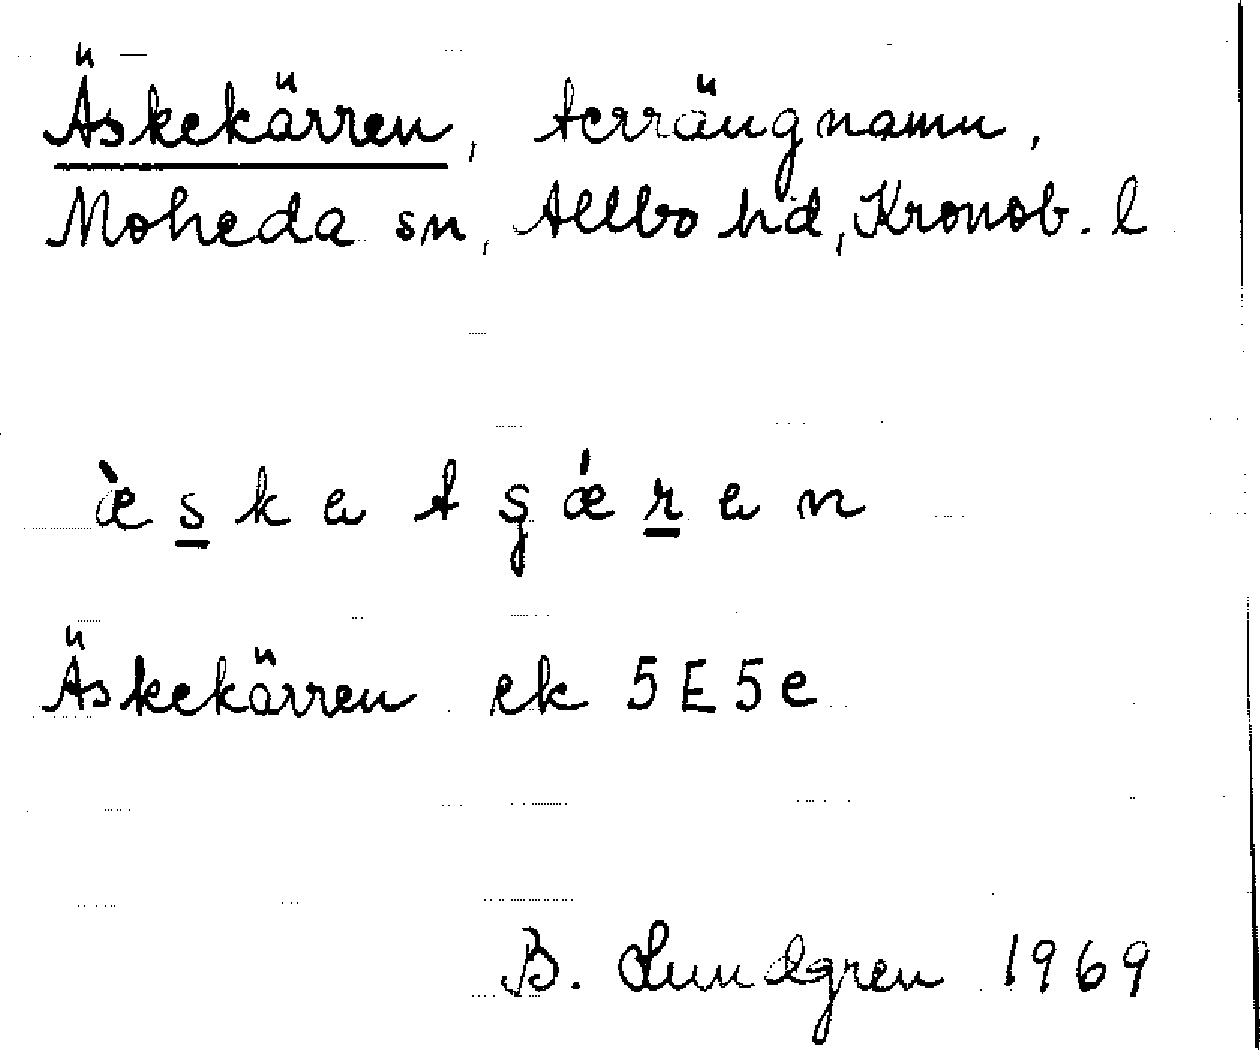 Äskekärren, terrängnamn,
Moheda sn, Allbo hd, Kronob. l
æ̀ s̲ k e t ʂ ǽ r̲ e n
Äskekärren ek 5E5e
B. Lundgren 1969